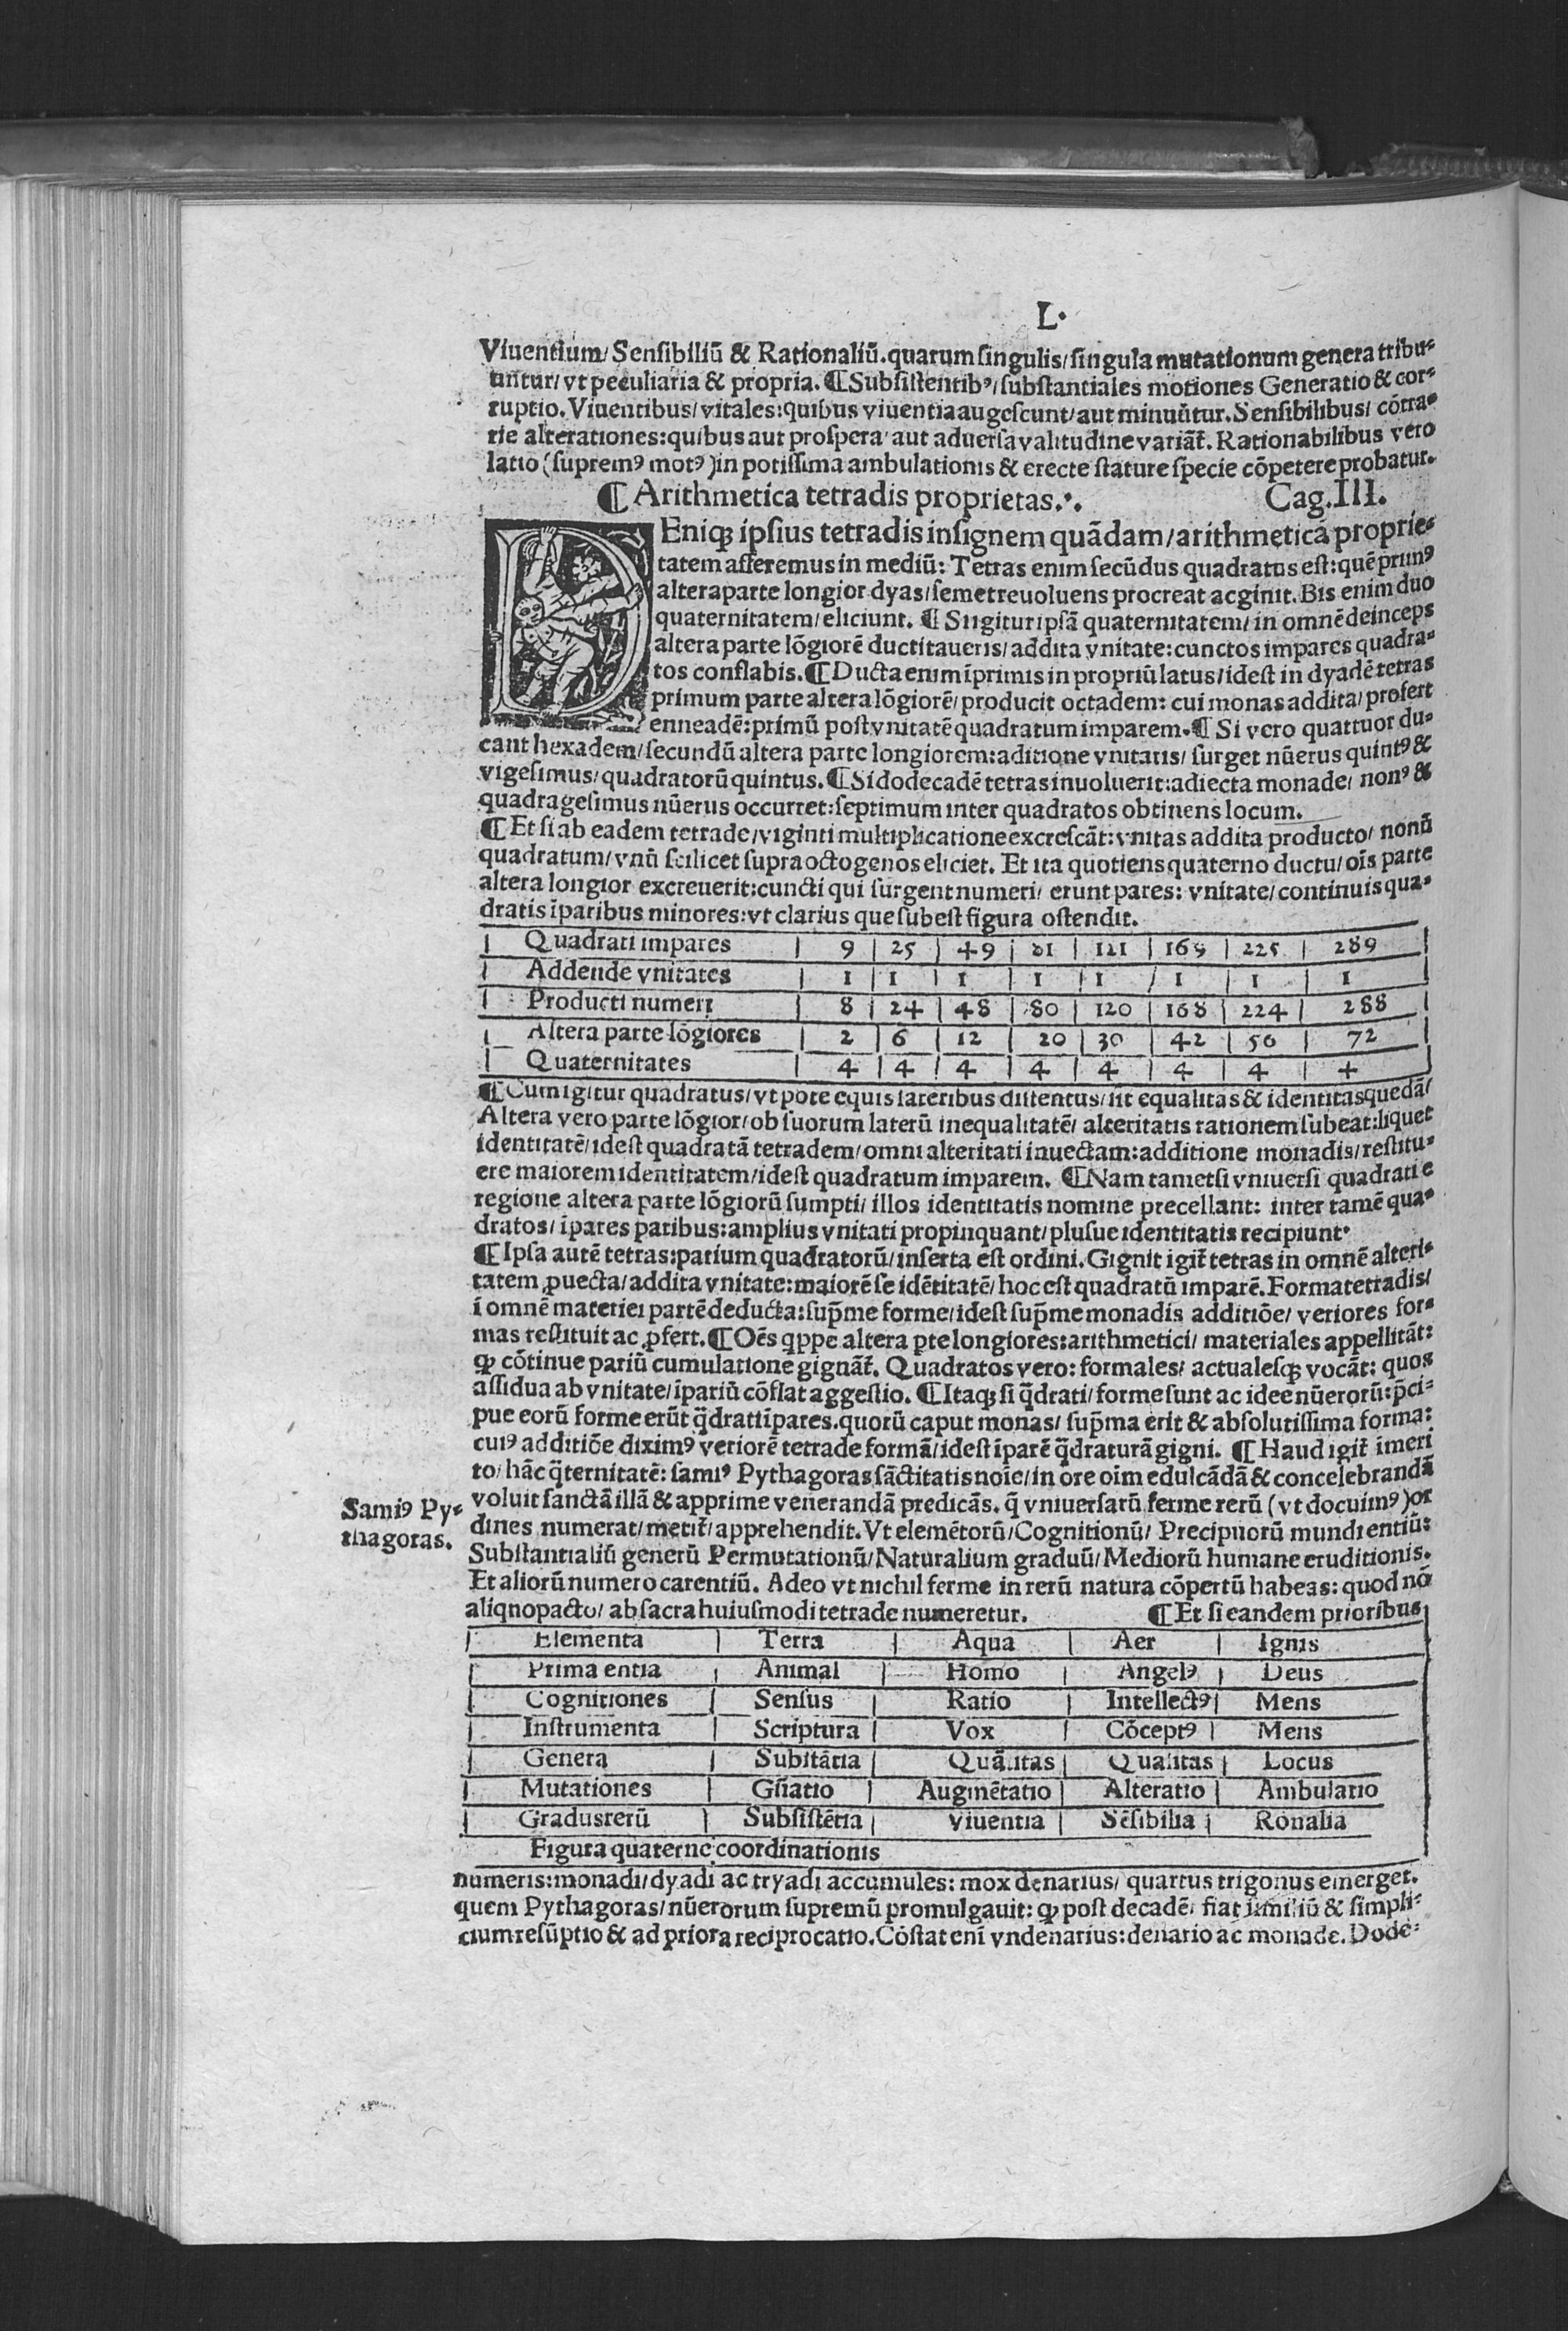 L.
Viuentium/ Sensibiliū & Rationaliū. quarum singulis/ singula mutationum genera tribu-
untur/ vt peculiaria & propria. ¶ Subsistentibꝰ/ substantiales motiones Generatio & cor-
ruptio. Viuentibus/ vitales: quibus viuentia augescunt/ aut minuūtur. Sensibilibus/ cōtra-
rie alterationes: quibus aut prospera/ aut aduersa valitudine variāt̄. Rationabilibus vero
latio (supremꝰ motꝰ) in potissima ambulationis & erecte stature specie cōpetere probatur.
¶ Arithmetica tetradis proprietas. Cag. III.
DEniqꝫ ipsius tetradis insignem quādam/ arithmeticā proprie-
tatem afferemus in mediū: Tetras enim secūdus quadratus est: quē primꝰ
altera parte longior dyas/ semet reuoluens procreat ac ginit. Bis enim duo
quaternitatem/ eliciunt. ¶ Si igitur ipsā quaternitatem/ in omnē deinceps
altera parte lōgiorē ductitaueris/ addita vnitate: cunctos impares quadra-
tos conflabis. ¶ Ducta enim īprimis in propriū latus/ idest in dyadē tetras
primum parte altera lōgiorē/ producit octadem: cui monas addita/ profert
enneadē: primū post vnitatē quadratum imparem. ¶ Si vero quattuor du-
cant hexadem/ secundū altera parte longiorem: aditione vnitatis/ surget nūerus quintꝰ &
vigesimus/ quadratorū quintus. ¶ Si dodecadē tetras inuoluerit: adiecta monade/ nonꝰ &
quadragesimus nūerus occurret: septimum inter quadratos obtinens locum.
¶ Et si ab eadem tetrade/ viginti multiplicatione excrescāt: vnitas addita producto/ nonū
quadratum/ vnū scilicet supra octogenos eliciet. Et ita quotiens quaterno ductu/ oīs parte
altera longior excreuerit: cuncti qui surgent numeri/ erunt pares: vnitate/ continuis qua-
dratis īparibus minores: vt clarius que subest figura ostendit.
Quadrati impares | 9 | 25 | 49 | 81 | 121 | 169 | 225 | 289
Addende vnitates | 1 | 1 | 1 | 1 | 1 | 1 | 1 | 1
Producti numeri | 8 | 24 | 48 | 80 | 120 | 168 | 224 | 288
Altera parte lōgiores | 2 | 6 | 12 | 20 | 30 | 42 | 56 | 72
Quaternitates | 4 | 4 | 4 | 4 | 4 | 4 | 4 | 4
¶ Cum igitur quadratus/ vt pote equis lateribus distentus/ sit equalitas & identitas quedā/
Altera vero parte lōgior/ ob suorum laterū inequalitatē/ alteritatis rationem subeat: liquet
identitatē/ idest quadratā tetradem/ omni alteritati inuectam: additione monadis/ restitu-
ere maiorem identitatem/ idest quadratum imparem. ¶ Nam tametsi vniuersi quadrati e
regione altera parte lōgiorū sumpti/ illos identitatis nomine precellant: inter tamē qua-
dratos/ īpares paribus: amplius vnitati propinquant/ plusue identitatis recipiunt.
¶ Ipsa autē tetras: parium quadratorū/ inserta est ordini. Gignit igit̄ tetras in omnē alteri-
tatem ꝓuecta/ addita vnitate: maiorē se idētitatē/ hoc est quadratū imparē. Forma tetradis/
ī omnē materiei partē deducta: sup̄me forme/ idest sup̄me monadis additiōe/ veriores for-
mas restituit ac ꝓfert. ¶ Oēs qppe altera ꝑte longiores: arithmetici/ materiales appellitāt:
ꝙ cōtinue pariū cumulatione gignāt̄. Quadratos vero: formales/ actualesqꝫ vocāt: quos
assidua ab vnitate/ īpariū cōflat aggestio. ¶ Itaqꝫ si q̄drati/ forme sunt ac idee nūerorū: p̄ci-
pue eorū forme erūt q̄drati īpares. quorū caput monas/ sup̄ma erit & absolutissima forma:
cuiꝰ additiōe diximꝰ veriorē tetrade formā/ idest īparē q̄draturā gigni. ¶ Haud igit̄ imeri
to/ hāc q̄ternitatē: samiꝰ Pythagoras sāctitatis noīe/ in ore oīm edulcādā & concelebrandā
voluit sanctā illā & apprime venerandā predicās. q̄ vniuersarū ferme rerū (vt docuimꝰ) or
Samiꝰ Py-
thagoras.
dines numerat/ metit̄/ apprehendit. Vt elemētorū/ Cognitionū/ Precipuorū mundi entiū:
Substantialiū generū Permutationū/ Naturalium graduū/ Mediorū humane eruditionis.
Et aliorū numero carentiū. Adeo vt nichil ferme in rerū natura cōpertū habeas: quod nō
aliqnopacto/ ab sacra huiusmodi tetrade numeretur. ¶ Et si eandem prioribus
Elementa | Terra | Aqua | Aer | Ignis
Prima entia | Animal | Homo | Angelꝰ | Deus
Cognitiones | Sensus | Ratio | Intellectꝰ | Mens
Instrumenta | Scriptura | Vox | Cōceptꝰ | Mens
Genera | Substātia | Quātitas | Qualitas | Locus
Mutationes | Gn̄atio | Augmētatio | Alteratio | Ambulatio
Gradus rerū | Subsistētia | Viuentia | Sēsibilia | Rōnalia
Figura quaterne coordinationis
numeris: monadi/ dyadi ac tryadi accumules: mox denarius/ quartus trigonus emerget.
quem Pythagoras/ nūerorum supremū promulgauit: ꝙ post decadē/ fiat similiū & simpli-
cium resūptio & ad priora reciprocatio. Cōstat enī vndenarius: denario ac monade. Dode-